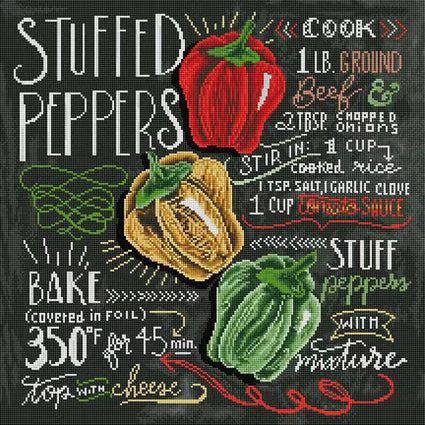 STUFFED
PEPPERS
COOK
1 LB. GROUND
Beef &
2 TBSP. CHOPPED ONIONS
STIR IN: 1 CUP
cooked rice
1 TSP. SALT, 1 GARLIC CLOVE
1 CUP Tomato SAUCE
STUFF
peppers
WITH
mixture
BAKE
(covered in FOIL)
350°F for 45 min.
top WITH cheese